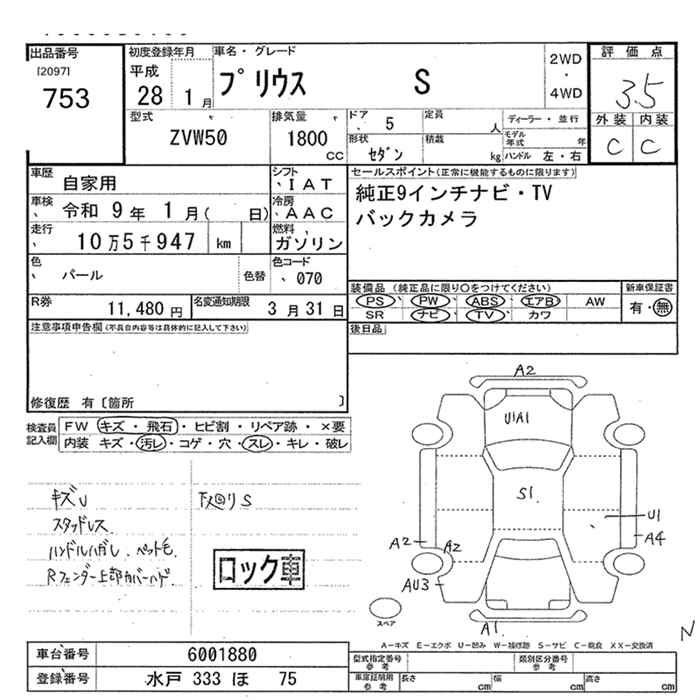 出品番号
[2097]
753
初度登録年月
平成
28 1月
車名・グレード
プリウス S
2WD
・
4WD
評価点
3.5
外装 内装
C C
型式
ZVW50
排気量
1800
CC
ドア 5
形状
セダン
定員
人
積載
kg
ディーラー・並行
モデル
年式 年
ハンドル 左・右
車歴
自家用
シフト
、IAT
車検
、令和 9年 1月( 日)
冷房
、AAC
走行
、10万5千947 km
燃料
ガソリン
色
、パール
色替
色コード
、070
R券
11,480円
名変通知期限
3月31日
セールスポイント(正常に機能するものに限ります)
純正9インチナビ・TV
バックカメラ
装備品 (純正品に限り○をつけてください)
PS PW ABS エアB AW
SR ナビ TV カワ
新車保証書
有・無
後日品
注意事項申告欄(不具合内容等は具体的に記入して下さい)
修復歴 有〔箇所 〕
検査員
記入欄
FW キズ・飛石・ヒビ割・リペア跡・×要
内装 キズ・汚レ・コゲ・穴・スレ・キレ・破レ
キズU
スタッドレス
ハンドルハガレ.ペット毛.
Rフェンダー上部カバーハガレ
下回りS
ロック車
A2
U1A1
S1
U1
A4
A2
A2
AU3
A1
スペア
N
A−キズ E−エクボ U−凹み W−補修跡 S−サビ C−腐食 XX−交換済
車台番号
6001880
登録番号
水戸 333 ほ 75
型式指定番号
参考
類別区分番号
参考
車庫証明用
参考
長さ cm
幅 cm
高さ cm